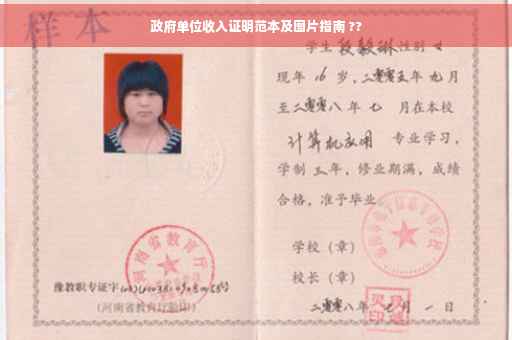 政府单位收入证明范本及图片指南??
样本
学生段毅琳性别女
现年16岁,二零零五年九月
至二零零八年七月在本校
计算机应用 专业学习,
学制三年,修业期满,成绩
合格,准予毕业。
学校(章)
校长(章)
二零零八年七月一日
河南省教育厅
豫教职专证字
(河南省教育厅验印)